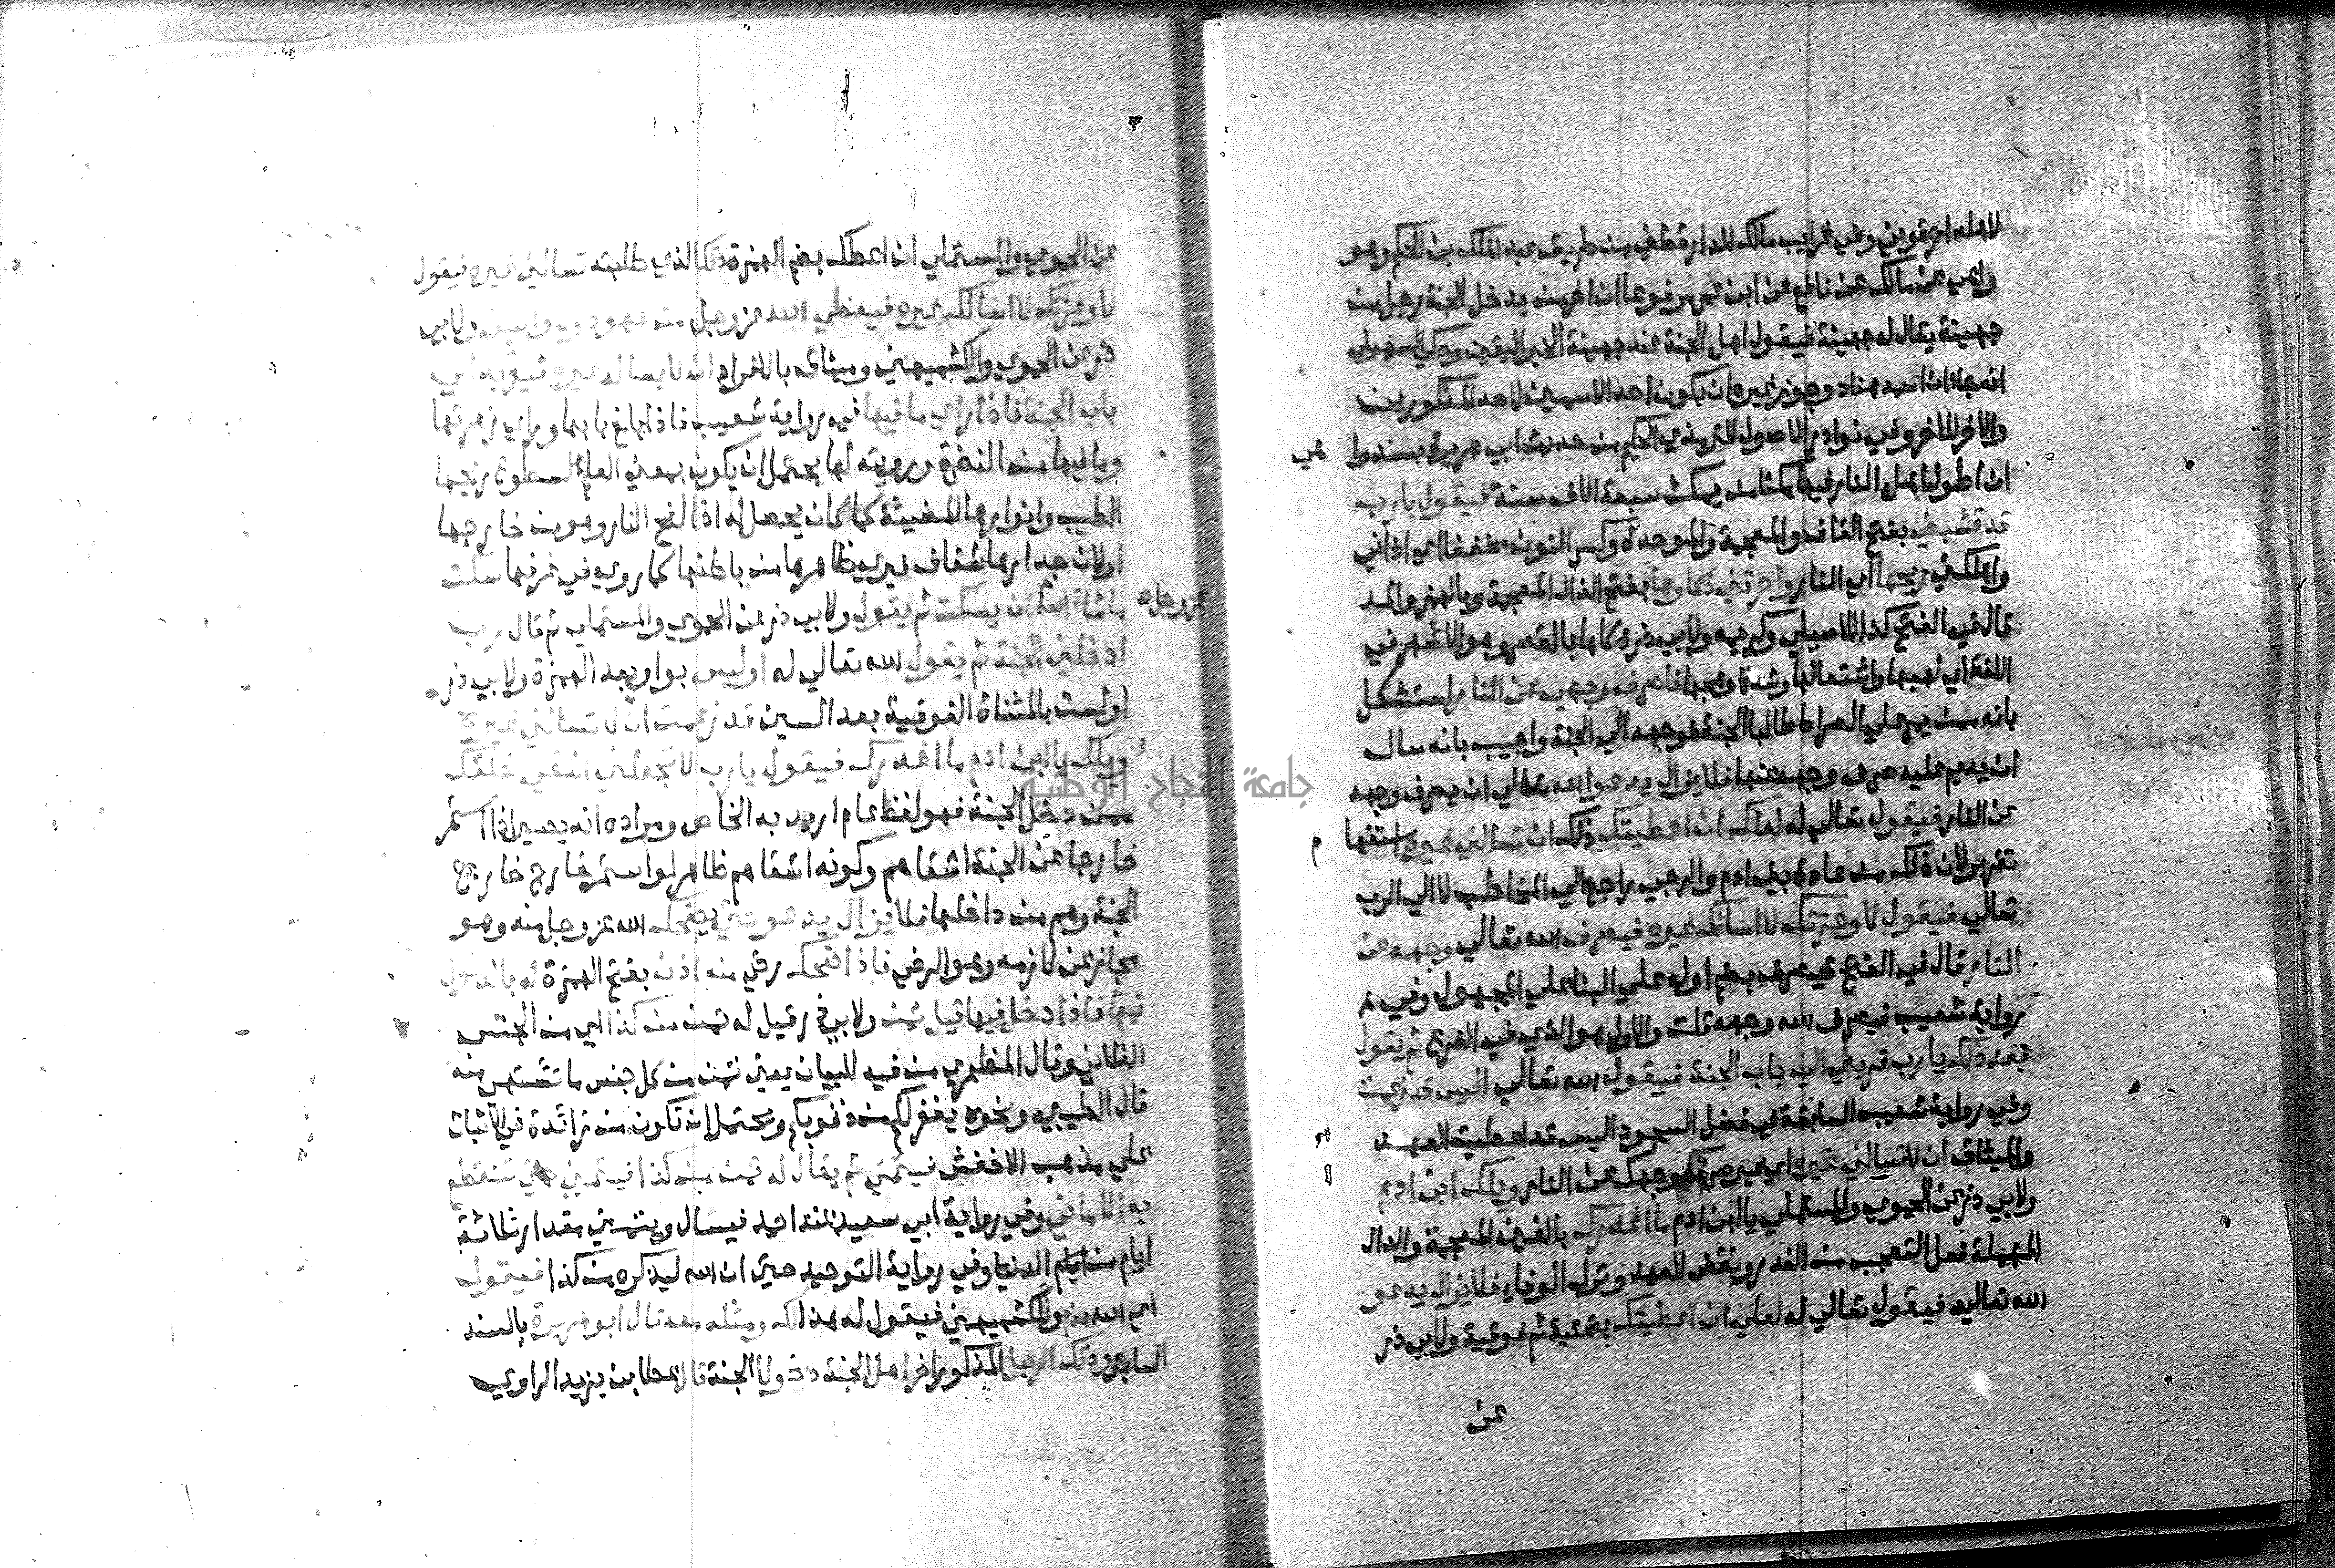 لاهله ارقوني وفي غرايب مالك للدارقطني من طريق عبد الملك بن الحكم وهو
واهي عن مالك عن نافع عن ابن عمر رفوعا ان اخر من يدخل الجنة رجل من
جهينة يقال له جهينة فيقول اهل الجنة عند جهينة الخبر اليقين وحكي السهيلي
انه جاء ان اسمه هناد وجوز غيره ان يكون احد الاسمين لاحد المذكورين
والاخر للاخر وفي نوادر الاصول للترمذي الحكيم من حديث ابي هريرة بسند وا
هي
ان اطول اهل النار فيها مكثا من يمكث سبعة الاف سنة فيقول يارب
قد قشبني بفتح القاف والمعجمة والموحدة وكسر النون مخففا اي اذاني
واهلكني ريحها اي النار واحرقني ذكاوها بفتح الذال المعجمة وبالهمز والمد
قال في الفتح كذا للاصيلي وكريمه ولابي ذر ذكاها بالقصر وهو الاشهر في
اللغة اي لهبها واشتعالها وشدة وهجها فاصرف وجهي عن النار استشكل
بانه ممن يمر علي الصراط طالبا الجنة فوجهه الي الجنة واجيب بانه سال
ان يديم عليه صرف وجهه عنها فلا يزال يدعو الله تعالي ان يصرف وجهه
عن النار فيقول تعالي له لعلك ان اعطيتك ذلك ان تسالني غيره استفها
م
تقرير لان ذلك من عادة بني ادم والرجي راجع الي المخاطب لا الي الرب
تعالي فيقول لا وعزتك لا اسالك غيره فيصرف الله تعالي وجهه عن
النار قال في الفتح فيصرف بضم اوله علي البنا علي المجهول وفي
رواية شعيب فيصرف الله وجهه قلت والاول هو الذي في الفرع ثم يقول
بعد ذلك يا رب قربني الي باب الجنة فيقول الله تعالي اليس قد زعمت
وفي رواية شعيب السابقة في فضل السجود اليس قد اعطيت العهد
والميثاق ان لا تسالني غيره اي غير صرف وجهك عن النار ويلك ابن ادم
ولابي ذر عن الحموي والمستملي يا ابن ادم ما اغدرك بالغين المعجمة والدال
المهملة فعل التعجب من الغدر ونقض العهد وترك الوفاء فلا يزال يدعو
الله تعالي فيقول تعالي له لعلي ان اعطيتك بتحتية ثم فوقية ولابي ذر
عن
عن الحموي والمستملي ان اعطك بضم الهمزة ذلك الذي طلبته تسالني غيره فيقول
لا وعزتك لا اسالك غيره فيعطي الله عز وجل من عهود ومواثيق ولابي
ذر عن الحموي والكشميهني وميثاق بالافراد ان لا يساله غيره فيقربه الي
باب الجنة فاذا راي ما فيها في رواية شعيب فاذا بلغ بابها وراي زهرتها
وما فيها من النضرة ورويته لها يحتمل ان يكون بمعني العلم لسطوع ريحها
الطيب وانوارها المضيئة كما كان يحصل له اذا الفح النار وهو من خارجها
او لان جدارها شفاف فيري ظاهرها من باطنها كما روي في غرفها سكت
ماشاء الله ان يسكت ثم يقول ولابي ذر عن الحموي والمستملي ثم قال رب
عز وجل
ادخلني الجنة ثم يقول الله تعالي له اوليس بواو بعد الهمزة ولابي ذر
اولست بالمثناة الفوقية بعد السين قد زعمت ان لا تسالني غيره
ويلك يا ابن ادم ما اغدرك فيقول يا رب لا تجعلني اشقي خلقك
ممن دخل الجنة فهو لفظ عام اريد به الخاص ومراده انه يصير اذا استمر
خارجا عن الجنة اشقاهم وكونه اشقاهم ظاهر لو استمر خارج خارج
الجنة وهم من داخلها فلا يزال يدعو حتي يضحك الله عز وجل منه وهو
مجاز عن لازمه وهو الرضي فاذا ضحك رضي منه اذن بفتح الهمزة له بالدخول
فيها فاذا دخل فيها قيل تمن ولابي ذر قيل له تمن من كذا اي من الجنس
الفلاني وقال المظهري من فيه للبيان يعني تمن من كل جنس ما تشتهي منه
قال الطيبي ونحوه يغفر لكم من ذنوبكم ويحتمل ان تكون من زائدة في الاثبات
علي مذهب الاخفش فيتمني ثم يقال له تمن من كذا فيتمني حتي تنقطع
به الاماني وفي رواية ابي سعيد عند احمد فيسال ويتمني مقدار ثلاثة
ايام من ايام الدنيا وفي رواية التوحيد حتي ان الله ليذكره من كذا فيقول
اي الله وللكشميهني فيقول له هذا لك ومثله معه قال ابو هريرة بالسند
السابق وذلك الرجل المذكور اخر اهل الجنة دخولا الجنة قال عطا بن يزيد الراوي
جامعة النجاح الوطنية